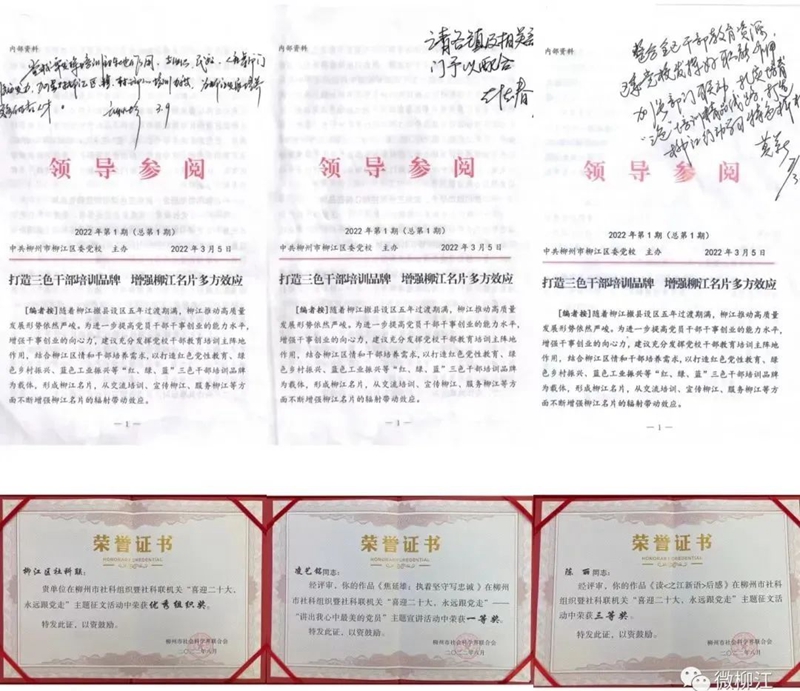 内部资料
领导参阅
2022年第1期（总第1期）
中共柳州市柳江区委党校 主办 2022年3月5日
打造三色干部培训品牌 增强柳江名片多方效应
【编者按】随着柳江撤县设区五年过渡期满，柳江推动高质量
发展形势依然严峻。为进一步提高党员干部干事创业的能力水平，
增强干事创业的向心力，建议充分发挥党校干部教育培训主阵地
作用，结合柳江区情和干部培养需求，以打造红色党性教育、绿
色乡村振兴、蓝色工业振兴等“红、绿、蓝”三色干部培训品牌
为载体，形成柳江名片，从交流培训、宣传柳江、服务柳江等方
面不断增强柳江名片的辐射带动效应。
— 1 —
内部资料
请各镇及相关部
门予以配合
领导参阅
2022年第1期（总第1期）
中共柳州市柳江区委党校 主办 2022年3月5日
打造三色干部培训品牌 增强柳江名片多方效应
【编者按】随着柳江撤县设区五年过渡期满，柳江推动高质量
发展形势依然严峻。为进一步提高党员干部干事创业的能力水平，
增强干事创业的向心力，建议充分发挥党校干部教育培训主阵地
作用，结合柳江区情和干部培养需求，以打造红色党性教育、绿
色乡村振兴、蓝色工业振兴等“红、绿、蓝”三色干部培训品牌
为载体，形成柳江名片，从交流培训、宣传柳江、服务柳江等方
面不断增强柳江名片的辐射带动效应。
— 1 —
内部资料
领导参阅
2022年第1期（总第1期）
中共柳州市柳江区委党校 主办 2022年3月5日
打造三色干部培训品牌 增强柳江名片多方效应
【编者按】随着柳江撤县设区五年过渡期满，柳江推动高质量
发展形势依然严峻。为进一步提高党员干部干事创业的能力水平，
增强干事创业的向心力，建议充分发挥党校干部教育培训主阵地
作用，结合柳江区情和干部培养需求，以打造红色党性教育、绿
色乡村振兴、蓝色工业振兴等“红、绿、蓝”三色干部培训品牌
为载体，形成柳江名片，从交流培训、宣传柳江、服务柳江等方
面不断增强柳江名片的辐射带动效应。
— 1 —
荣誉证书
HONORARY CREDENTIAL
柳江区社科联：
贵单位在柳州市社科组织暨社科联机关“喜迎二十大、
永远跟党走”主题征文活动中荣获优秀组织奖。
特发此证，以资鼓励。
柳州市社会科学界联合会
二〇二二年八月
荣誉证书
HONORARY CREDENTIAL
凌艺铭同志：
经评审，你的作品《焦延雄：执着坚守写忠诚》在柳州
市社科组织暨社科联机关“喜迎二十大、永远跟党走”——
“讲出我心中最美的党员”主题宣讲活动中荣获一等奖。
特发此证，以资鼓励。
柳州市社会科学界联合会
二〇二二年八月
荣誉证书
HONORARY CREDENTIAL
陈丽同志：
经评审，你的作品《读<之江新语>后感》在柳州市社科
组织暨社科联机关“喜迎二十大、永远跟党走”主题征文活
动中荣获三等奖。
特发此证，以资鼓励。
柳州市社会科学界联合会
微柳江